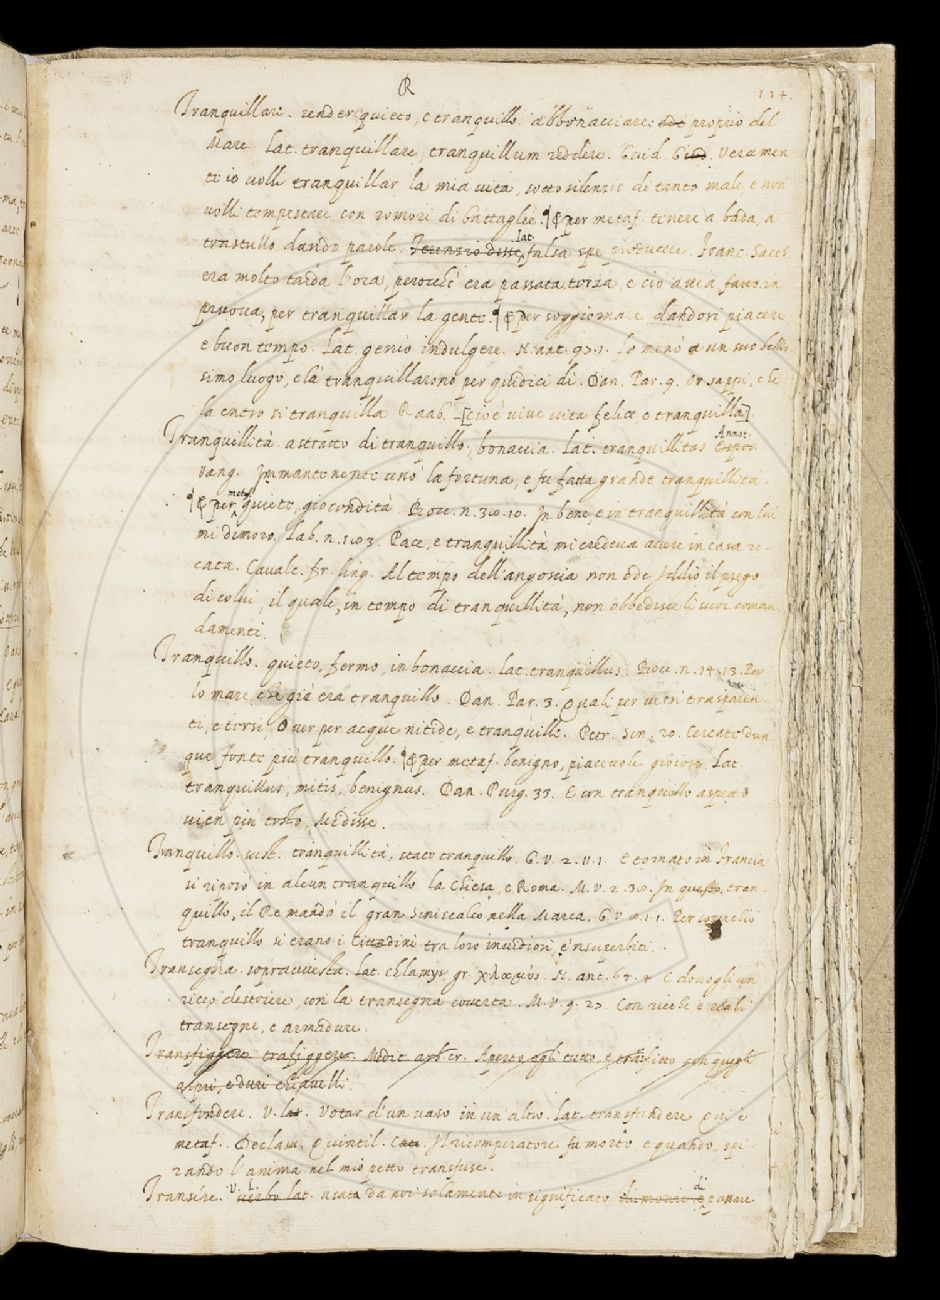 R
114.
Tranquillare. render quieto, e tranquillo. abbonacciare: ed è proprio del
Mare. Lat. tranquillare, tranquillum reddere. Guid. Giud. Veramen
te io volli tranquillar la mia vita, sotto silenzio di tanto male, e non
volli tempestare con romori di battaglie. ¶ E per metaf. tenere a bada, a
trastullo dando parole. Lat. falsa spe producere. Franc. Sacch.
era molto tarda l'ora, perocchè era passata terza, e ciò avea fatto in
pruova, per tranquillar la gente. ¶ E per soggiornare dandosi piacere
e buon tempo. Lat. genio indulgere. N. ant. 93.1. Lo menò a un suo bellis
simo luogo, e là tranquillarono per quindici dì. Dan. Par. 9. Or sappi, che
là entro si tranquilla Raab. [cioè vive vita felice, e tranquilla]
Tranquillità. astratto di tranquillo, bonaccia. Lat. tranquillitas. Annot.
Vang. Immantenente cessò la fortuna, e fu fatta grande tranquillità.
¶ E per metaf. quiete, giocondità. Bocc. n. 30.10. In bene, e in tranquillità con lui
mi dimoro. Lab. n. 103. Pace, e tranquillità mi credeva avere in casa re-
cata. Cavalc. fr. ling. Al tempo dell'angoscia non ode Iddio il prego
di colui, il quale, in tempo di tranquillità, non obbedisce li suoi coman
damenti.
Tranquillo. quieto, fermo, in bonaccia. lat. tranquillus. Bocc. n. 14.13. Per
lo mare, che già era tranquillo. Dan. Par. 3. Quali per vetri trasparen-
ti, e tersi, O ver per acque nitide, e tranquille. Petr. Son. 20. Cercate dun
que fonte più tranquillo. ¶ E per metaf. benigno, piacevole gioioso. Lat.
tranquillus, mitis, benignus. Dan. Purg. 33. E con tranquillo aspetto
vien più tosto, Mi disse.
Tranquillo. sust. tranquillità, stato tranquillo. G. V. 2. 11. 1. E tornato in Francia
si riposò in alcun tranquillo la Chiesa, e Roma. M. V. 2. 30. In questo tran-
quillo, il Re mandò il gran Siniscalco nella Marca. G. V. 9. 1. 1. Per
tranquillo si erano i Cittadini tra loro invidiosi, e 'nsuperbiti.
Transegna. sopravvesta. lat. chlamys, gr. χλαμύς. N. ant. 64. 4 E donogli un
ricco destriere, con la transegna coverta. M. V. 9. 23. Con ricche e reali
transegne, e armadure.
Transfiggere. trafiggere. Medit. arb. cr. Aperto egli tutto, e transfitto con quegli
aspri, e duri chiavelli.
Transfondere. V. lat. Votar d'un vaso in un'altro. lat. transfundere. Qui è
metaf. Declam. Quintil. Il ricomperatore fu morto e quando, spi-
rando l'anima nel mio petto transfuse.
Transire. V. L. verbo lat. usata da noi solamente in significato di passare